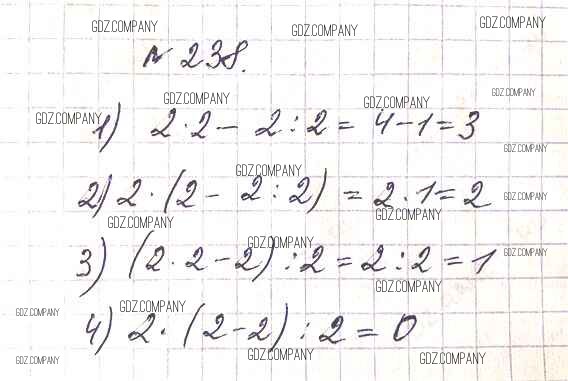 GDZ.COMPANY GDZ.COMPANY GDZ.COMPANY
№ 238.
GDZ.COMPANY GDZ.COMPANY GDZ.COMPANY
GDZ.COMPANY
1) 2·2 - 2:2 = 4-1=3
GDZ.COMPANY GDZ.COMPANY
2) 2·(2 - 2:2) = 2·1=2
GDZ.COMPANY GDZ.COMPANY
GDZ.COMPANY
3) (2·2-2):2=2:2=1
GDZ.COMPANY GDZ.COMPANY
GDZ.COMPANY
GDZ.COMPANY GDZ.COMPANY
4) 2·(2-2):2=0
GDZ.COMPANY GDZ.COMPANY GDZ.COMPANY